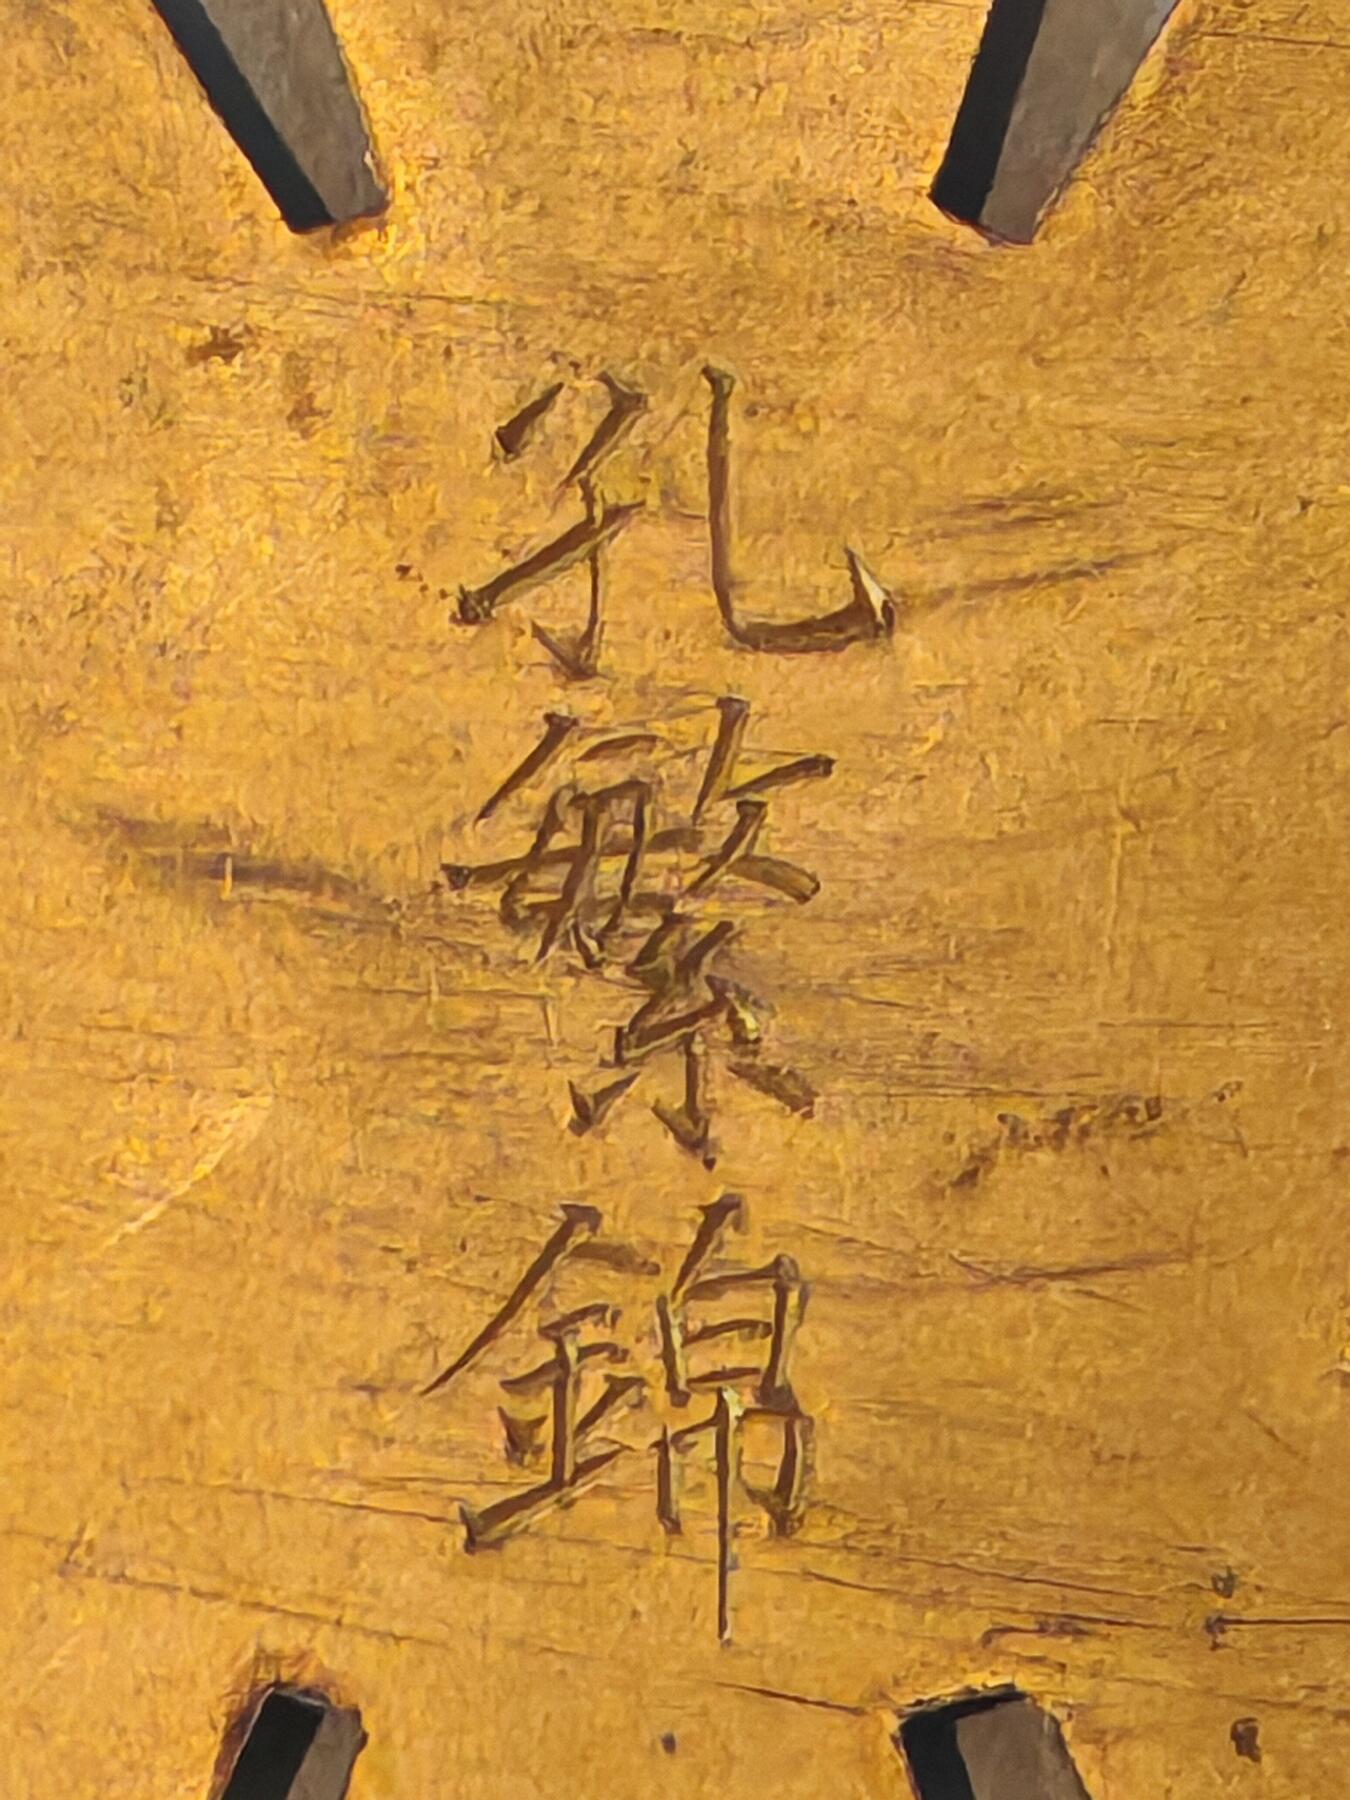 孔繁錦